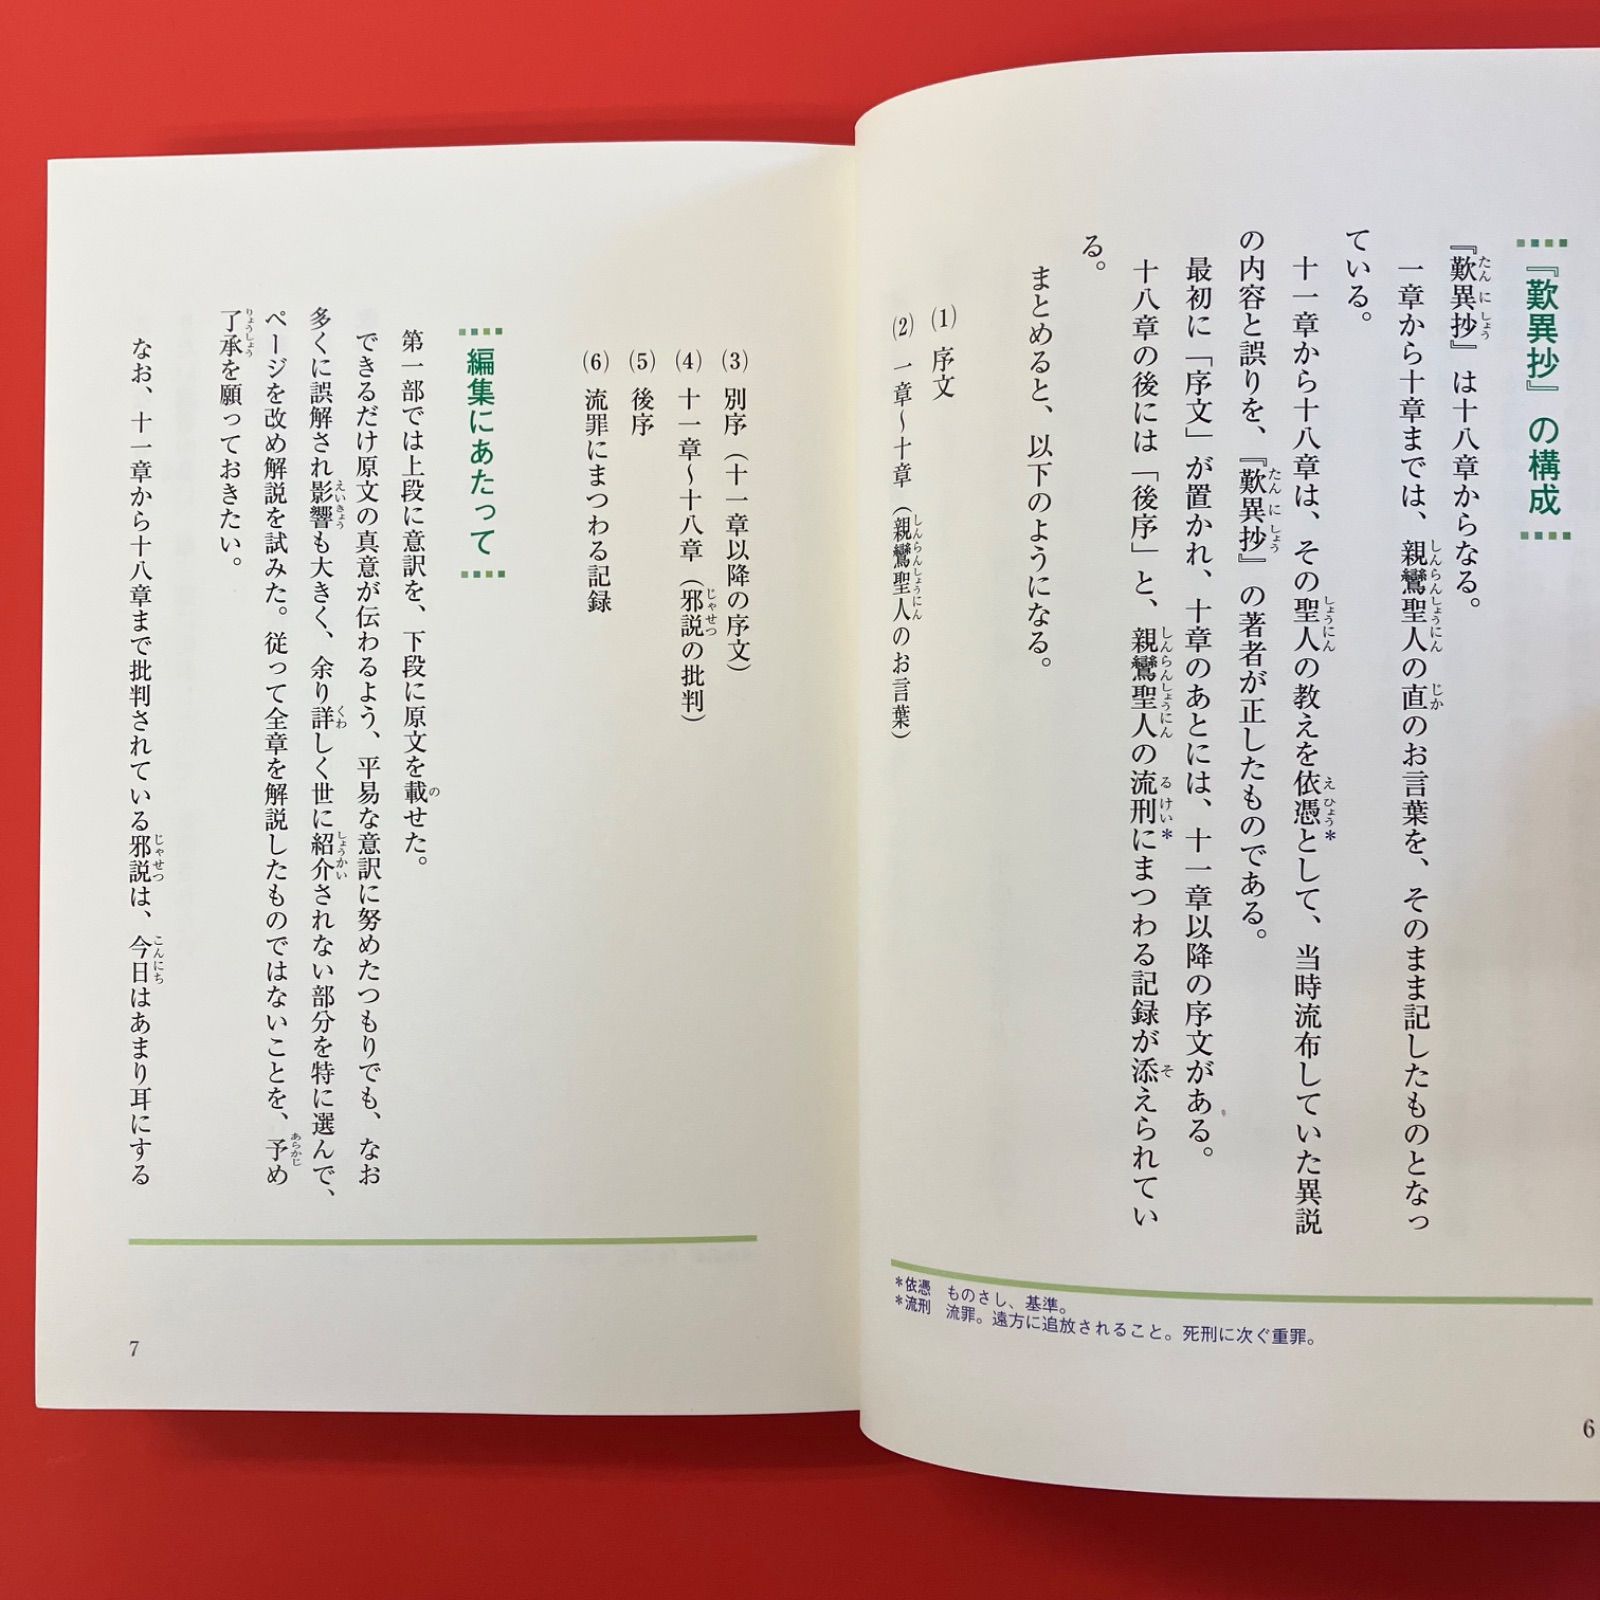 『歎異抄』の構成
『歎異抄』は十八章からなる。
一章から十章までは、親鸞聖人の直のお言葉を、そのまま記したものとなっ
ている。
十一章から十八章は、その聖人の教えを依憑*として、当時流布していた異説
の内容と誤りを、『歎異抄』の著者が正したものである。
最初に「序文」が置かれ、十章のあとには、十一章以降の序文がある。
十八章の後には「後序」と、親鸞聖人の流刑*にまつわる記録が添えられてい
る。
まとめると、以下のようになる。
(1) 序文
(2) 一章～十章(親鸞聖人のお言葉)
*依憑 ものさし、基準。
*流刑 流罪。遠方に追放されること。死刑に次ぐ重罪。
6
(3) 別序(十一章以降の序文)
(4) 十一章～十八章(邪説の批判)
(5) 後序
(6) 流罪にまつわる記録
編集にあたって
第一部では上段に意訳を、下段に原文を載せた。
できるだけ原文の真意が伝わるよう、平易な意訳に努めたつもりでも、なお
多くに誤解され影響も大きく、余り詳しく世に紹介されない部分を特に選んで、
ページを改め解説を試みた。従って全章を解説したものではないことを、予め
了承を願っておきたい。
なお、十一章から十八章まで批判されている邪説は、今日はあまり耳にする
7